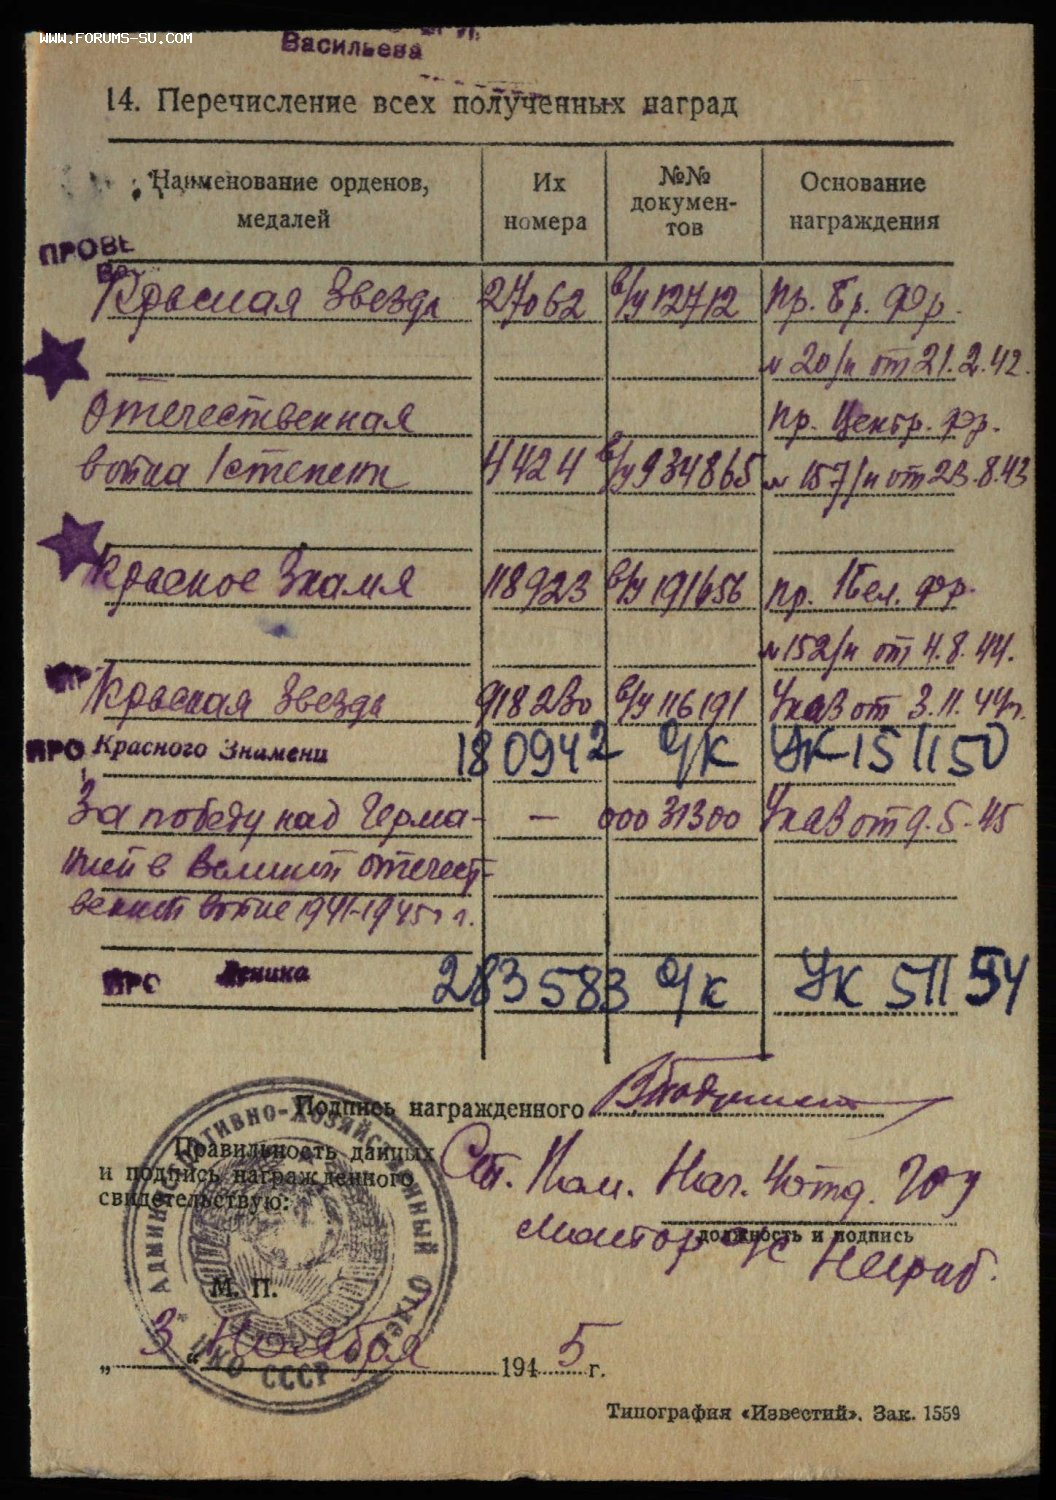 WWW.FORUMS-SU.COM
Васильева
14. Перечисление всех полученных наград
Наименование орденов, медалей
Их номера
№№ документов
Основание награждения
ПРОВЕ
Красная Звезда 27062 в/у 12712 Пр. Бр. Фр.
№ 20/н от 21.2.42.
Отечественная Пр. Центр. Фр.
война I степени 4424 в/у 934865 № 157/н от 23.8.43
Красное Знамя 118923 в/у 191656 Пр. 1 Бел. Фр.
№ 152/н от 4.8.44.
Красная Звезда 918230 в/у 116191 Указ от 3.11.44 г.
ПРО Красного Знамени 180942 о/к УК 151150
За победу над Герма- — 00031300 Указ от 9.5.45
нией в Великой отечест-
венной войне 1941-1945 г г.
ПРО Ленина 283583 о/к УК 511 54
Подпись награжденного
Правильность данных
и подпись награжденного
свидетельствую:
Ст. Пом. Нач. 4 отд. ГОУ
должность и подпись
майор а/с
М. П.
АДМИНИСТРАТИВНО-ХОЗЯЙСТВЕННЫЙ ОТДЕЛ НКО СССР
„3“ Ноября 1945 г.
Типография «Известий». Зак. 1559